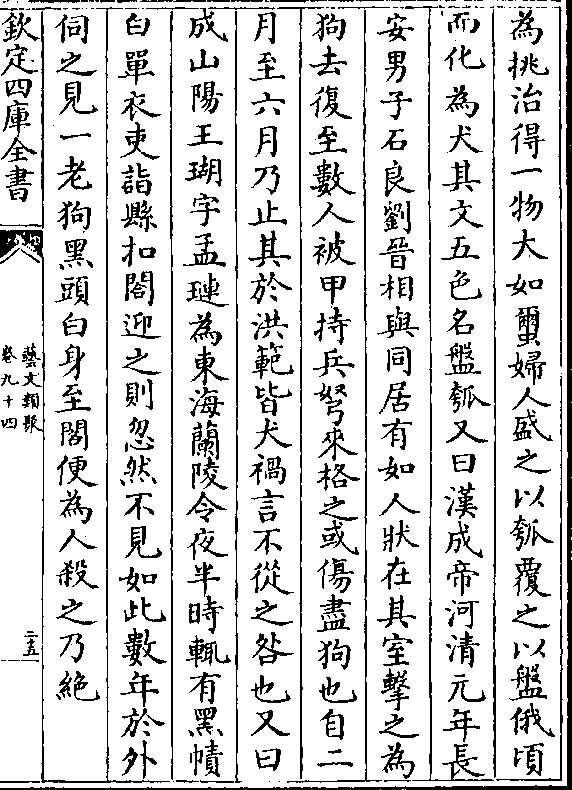 為挑治得一物大如蠒婦人盛之以瓠覆之以盤俄頃
而化為犬其文五色名盤瓠又曰漢成帝河清元年長
安男子石良劉晉相與同居有如人狀在其室擊之為
狗去復至數人被甲持兵弩來格之或傷盡狗也自二
月至六月乃止其於洪範皆犬禍言不從之咎也又曰
成山陽王瑚字孟璉為東海蘭陵令夜半時輒有黑幘
白單衣吏詣縣扣閤迎之則忽然不見如此數年於外
伺之見一老狗黑頭白身至閤便為人殺之乃絶
欽定四庫全書
藝文類聚
卷九十四
二五